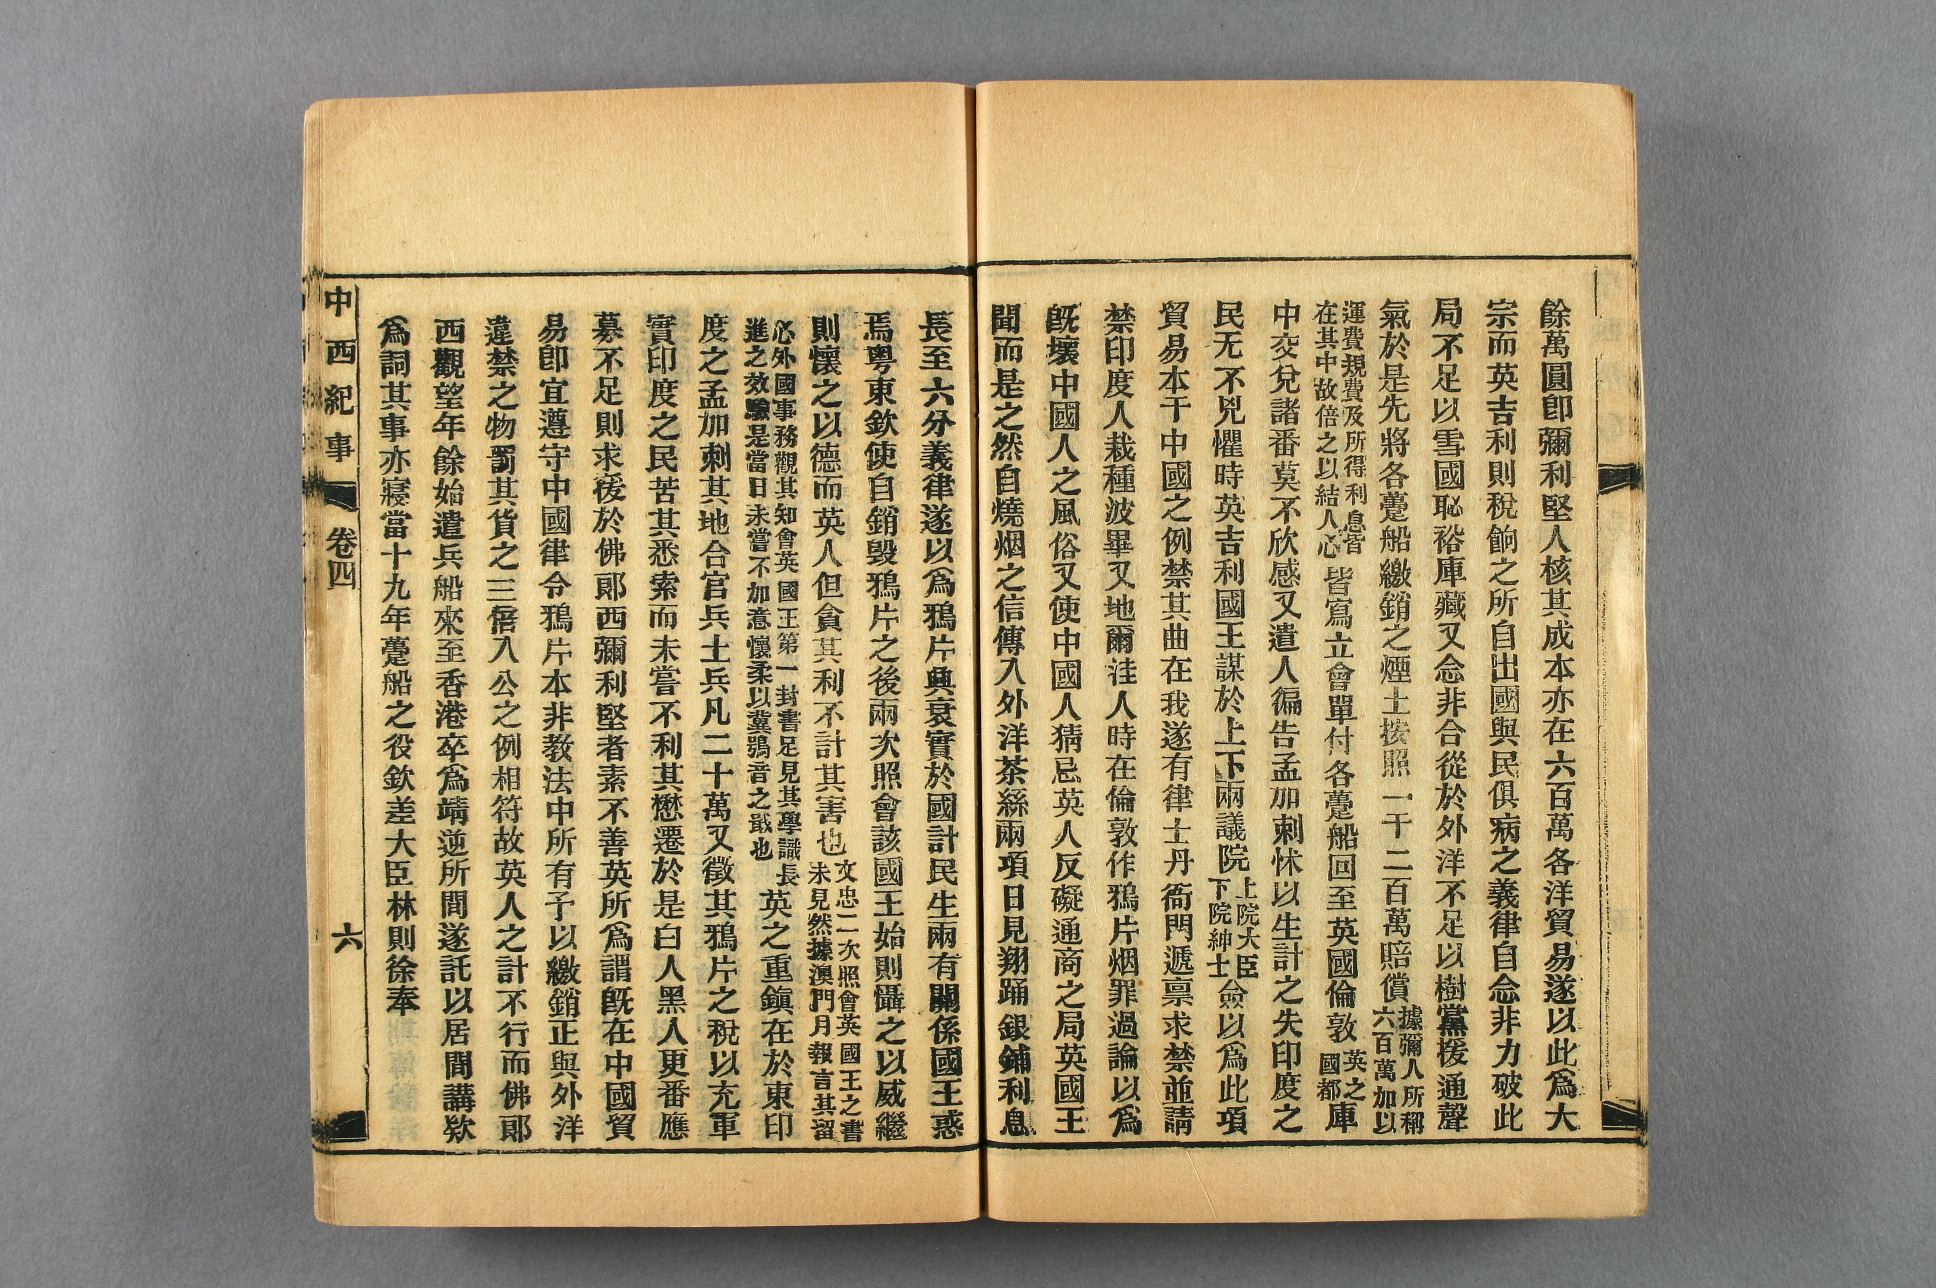 餘萬圓卽彌利堅人核其成本亦在六百萬各洋貿易遂以此爲大
宗而英吉利則稅餉之所自出國與民俱病之義律自念非力破此
局不足以雪國恥裕庫藏又念非合從於外洋不足以樹黨援通聲
氣於是先將各躉船繳銷之煙土按照一千二百萬賠償據彌人所稱六百萬加以
運費規費及所得利息皆在其中故倍之以結人心皆寫立會單付各躉船回至英國倫敦英之國都庫
中交兌諸番莫不欣感又遣人徧告孟加剌怵以生計之失印度之
民无不兇懼時英吉利國王謀於上下兩議院上院大臣下院紳士僉以爲此項
貿易本干中國之例禁其曲在我遂有律士丹衙門遞禀求禁並請
禁印度人栽種波畢又地爾洼人時在倫敦作鴉片烟罪過論以爲
旣壞中國人之風俗又使中國人猜忌英人反礙通商之局英國王
聞而是之然自燒烟之信傳入外洋茶絲兩項日見翔踊銀鋪利息
長至六分義律遂以爲鴉片興衰實於國計民生兩有關係國王惑
焉粵東欽使自銷毀鴉片之後兩次照會該國王始則懾之以威繼
則懷之以德而英人但貪其利不計其害也文忠二次照會英國王之書未見然據澳門月報言其留
心外國事務觀其知會英國王第一封書足見其學識長進之效驗是當日未嘗不加意懷柔以冀鴞音之戢也英之重鎮在於東印
度之孟加剌其地合官兵土兵凡二十萬又徵其鴉片之稅以充軍
實印度之民苦其悉索而未嘗不利其懋遷於是白人黑人更番應
募不足則求援於佛郞西彌利堅者素不善英所爲謂旣在中國貿
易卽宜遵守中國律令鴉片本非教法中所有予以繳銷正與外洋
違禁之物罰其貨之三倍入公之例相符故英人之計不行而佛郞
西觀望年餘始遣兵船來至香港卒爲靖逆所間遂託以居間講欵
爲詞其事亦寢當十九年躉船之役欽差大臣林則徐奉
中西紀事
卷四
六